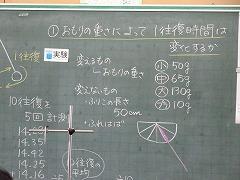 ①おもりの重さによって 1往復時間は
変化するか
1往復
実験
変えるもの
おもりの重さ
変えないもの
ふりこの長さ
50cm
ふれはば
小 50g
中 65g
大 130g
10g
10往復を
5回計測
14.35
14.42
14.25
14.16
1往復の
平均